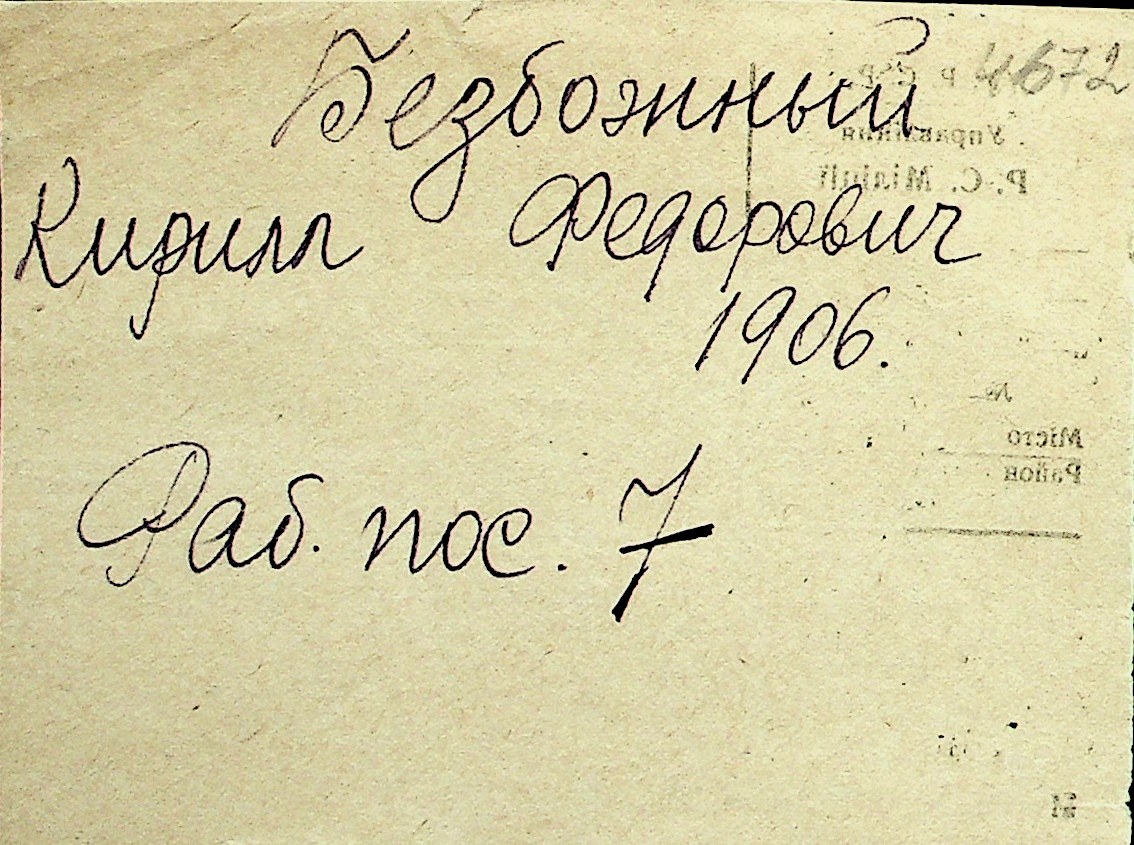 4672
Безбожный
Кирилл Федорович
1906.
Раб. пос. 7
Управління
Р.-С. Міліції
№
Місто
Район